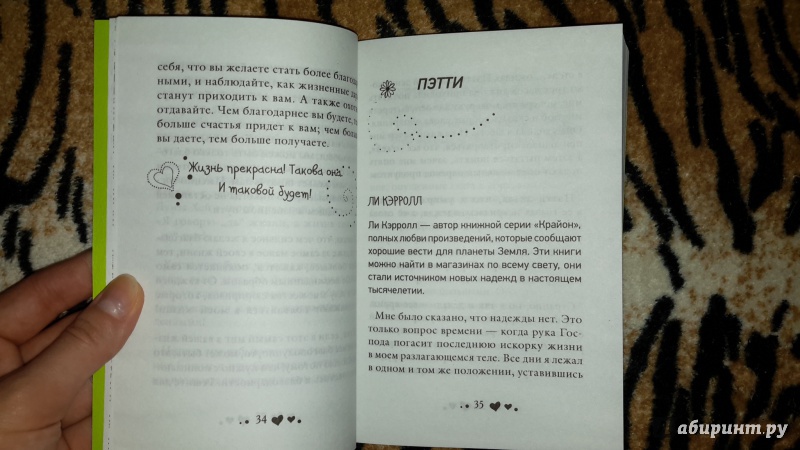 себя, что вы желаете стать более благода
ными, и наблюдайте, как жизненные
станут приходить к вам. А также
отдавайте. Чем благодарнее вы будете,
больше счастья придет к вам; чем
вы даете, тем больше получаете.
Жизнь прекрасна! Такова она.
И таковой будет!
34
ПЭТТИ
ЛИ КЭРРОЛЛ
Ли Кэрролл — автор книжной серии «Крайон»,
полных любви произведений, которые сообщают
хорошие вести для планеты Земля. Эти книги
можно найти в магазинах по всему свету, они
стали источником новых надежд в настоящем
тысячелетии.
Мне было сказано, что надежды нет. Это
только вопрос времени — когда рука Гос-
пода погасит последнюю искорку жизни
в моем разлагающемся теле. Все дни я лежал
в одном и том же положении, уставившись
35
абиринт.ру